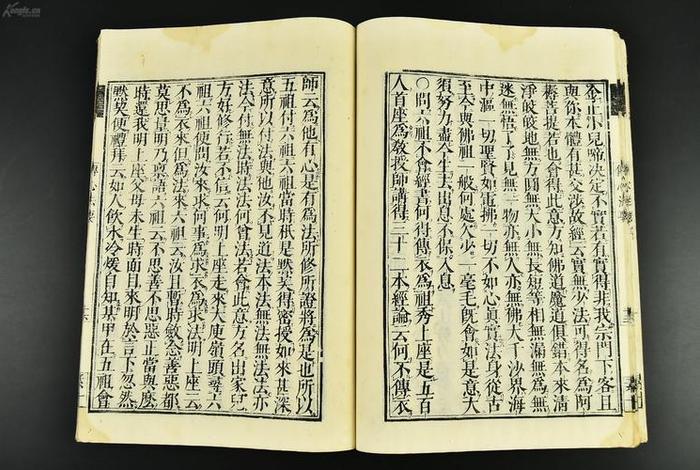 金止小兒啼決定不實若有實得非我宗門下客且
與你本體有甚交涉故經云實無少法可得名為阿
耨菩提若也會得此意方知佛道魔道俱錯本來清
淨皎皎地無方圓無大小無長短等相無漏無為無
迷無悟了了見無一物亦無人亦無佛大千沙界海
中漚一切聖賢如電拂一切不如心真實法身從古
至今與佛祖一般何處欠少一毫毛既會如是意大
須努力盡今生去出息不保入息
○問六祖不會經書何得傳衣為祖秀上座是五百
人首座為教授師講得三十二本經論云何不傳衣
師云為他有心是有為法所修所證將為是也所以
五祖付六祖六祖當時秖是默契得密授如來甚深
意所以付法與他汝不見道法本法無法無法法亦
法今付無法時法法何曾法若會此意方名出家兒
方好修行若不信云何明上座走來大庾嶺頭尋六
祖六祖便問汝來求何事為求衣為求法明上座云
不為衣來但為法來六祖云汝且暫時斂念善惡都
莫思量明乃稟語六祖云不思善不思惡正當與麼
時還我明上座父母未生時面目來明於言下忽然
默契便禮拜云如人飲水冷煖自知某甲在五祖會
傳心法要